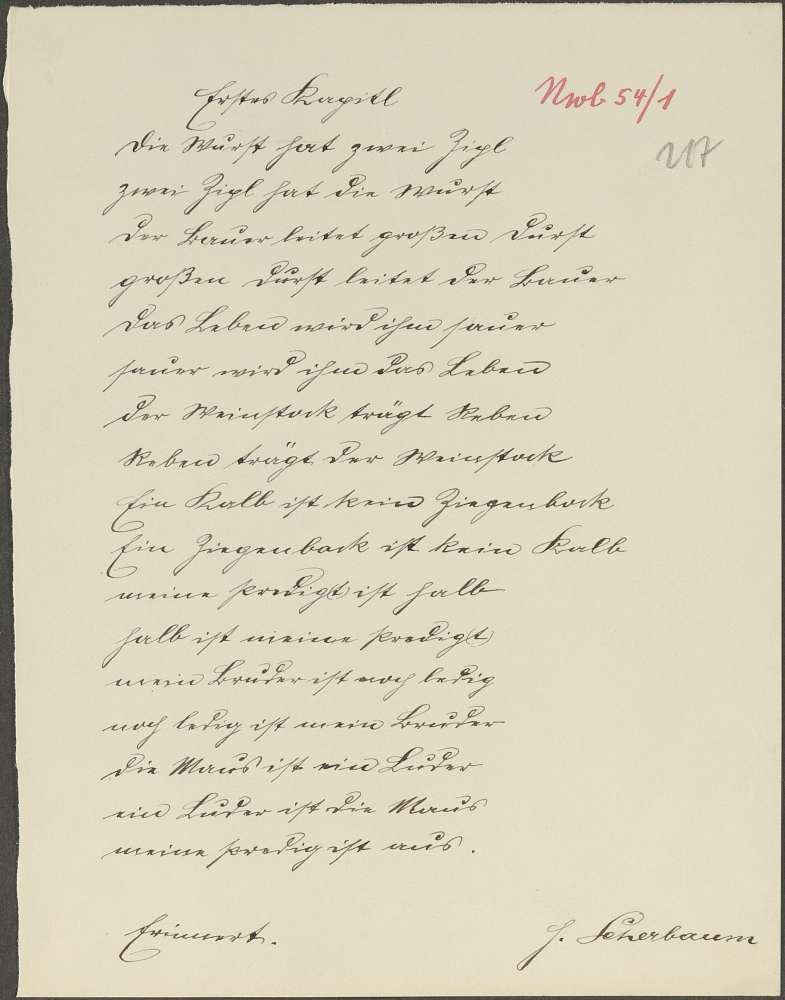 Erstes Kapitl
Nwb 54/1
217
Die Wurst hat zwei Zipl
zwei Zipl hat die Wurst
Der Bauer leitet großen Durst
großen Durst leitet der Bauer
Das Leben wird ihm sauer
sauer wird ihm das Leben
Der Weinstock trägt Reben
Reben trägt der Weinstock
Ein Kalb ist kein Ziegenbock
Ein Ziegenbock ist kein Kalb
meine Predig(t) ist halb
halb ist meine Predig(t)
mein Bruder ist noch ledig
noch ledig ist mein Bruder
die Maus ist ein Luder
ein Luder ist die Maus
meine Predig ist aus.
Erinnert.
H. Scherbaum